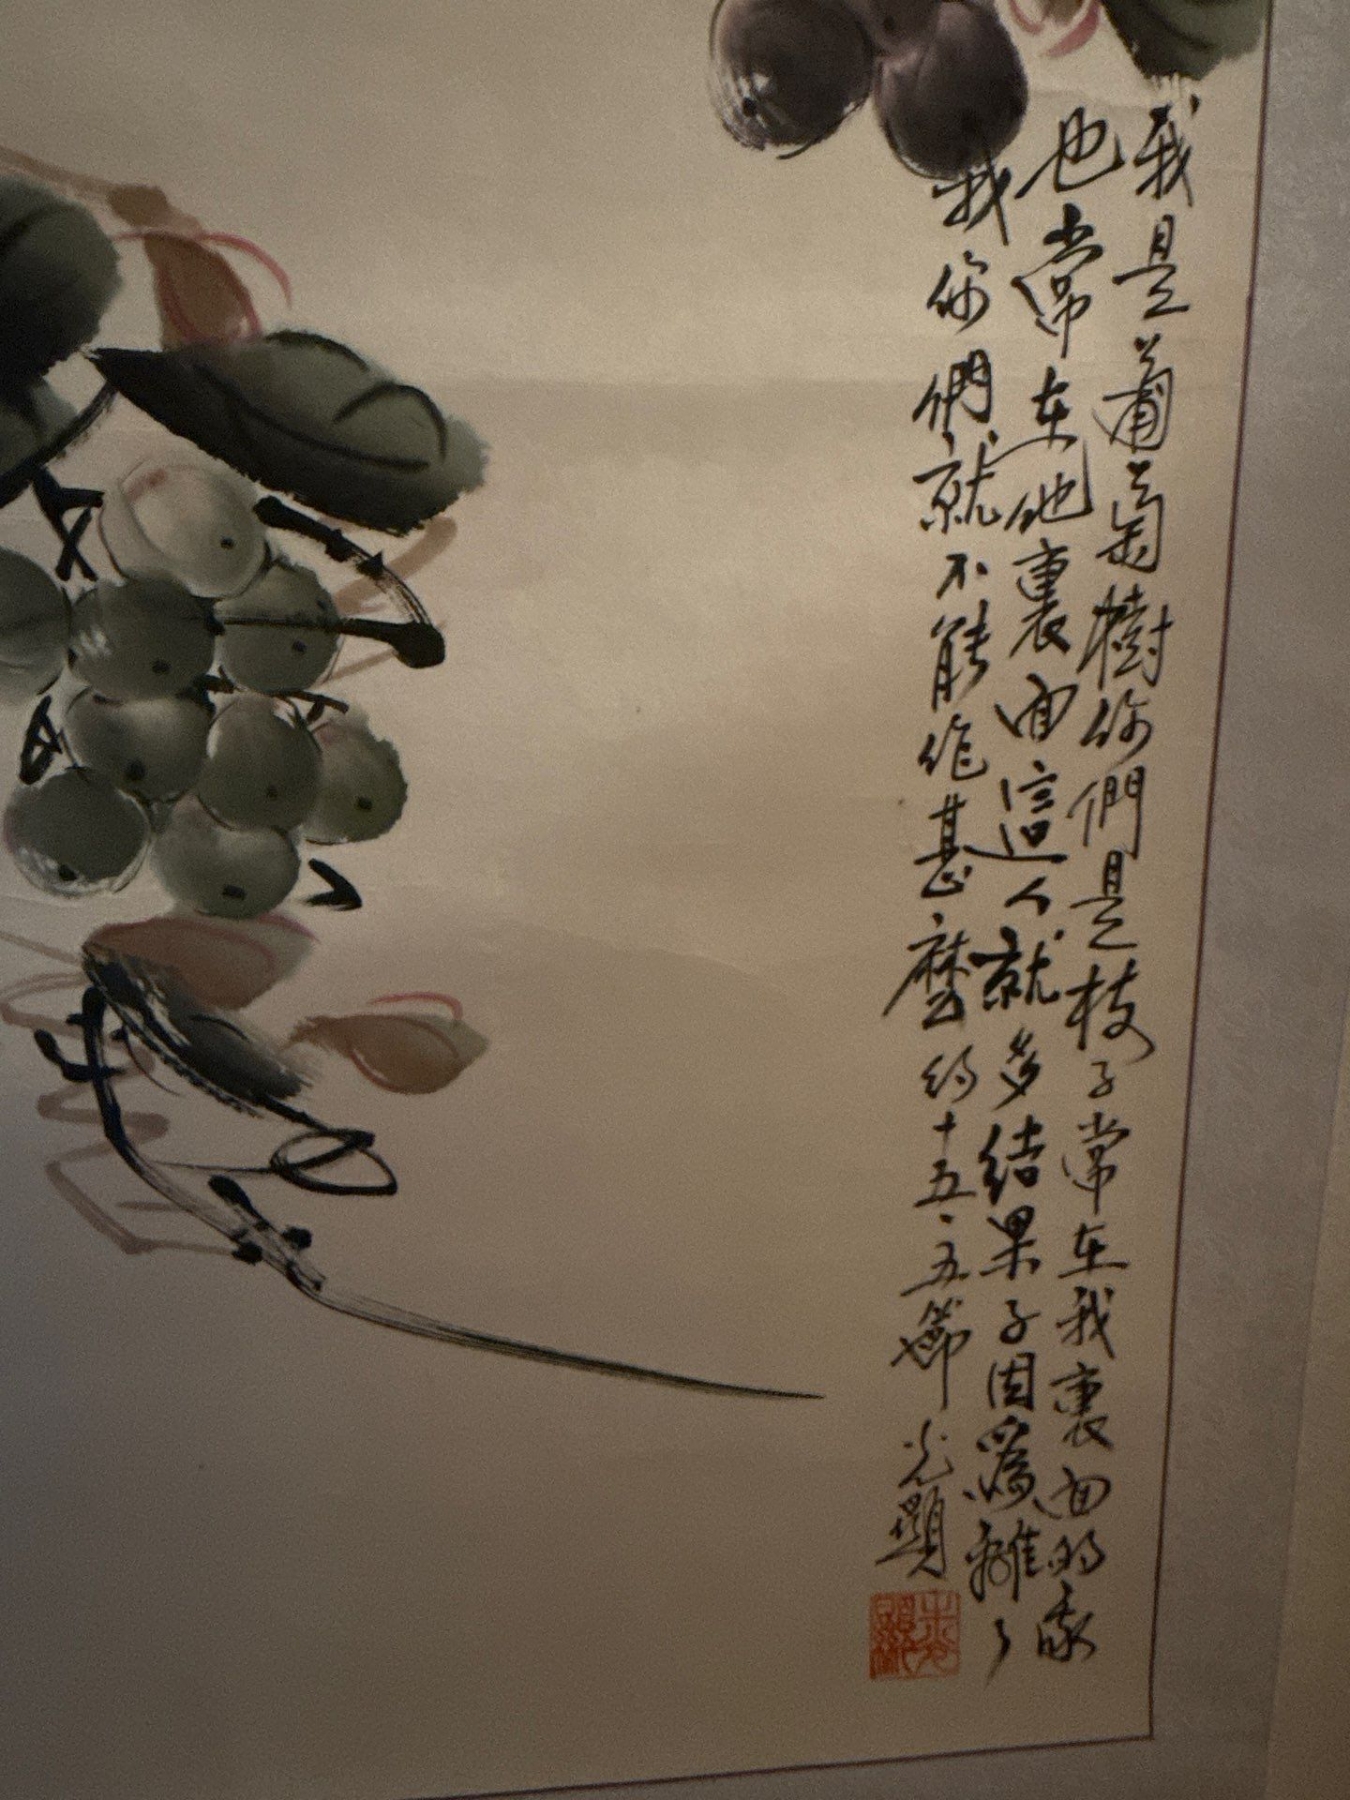 我是葡萄樹你們是枝子常在我裏面的我
也常在他裏面這人就多結果子因爲離了
我你們就不能作甚麽 約十五·五節 光顯